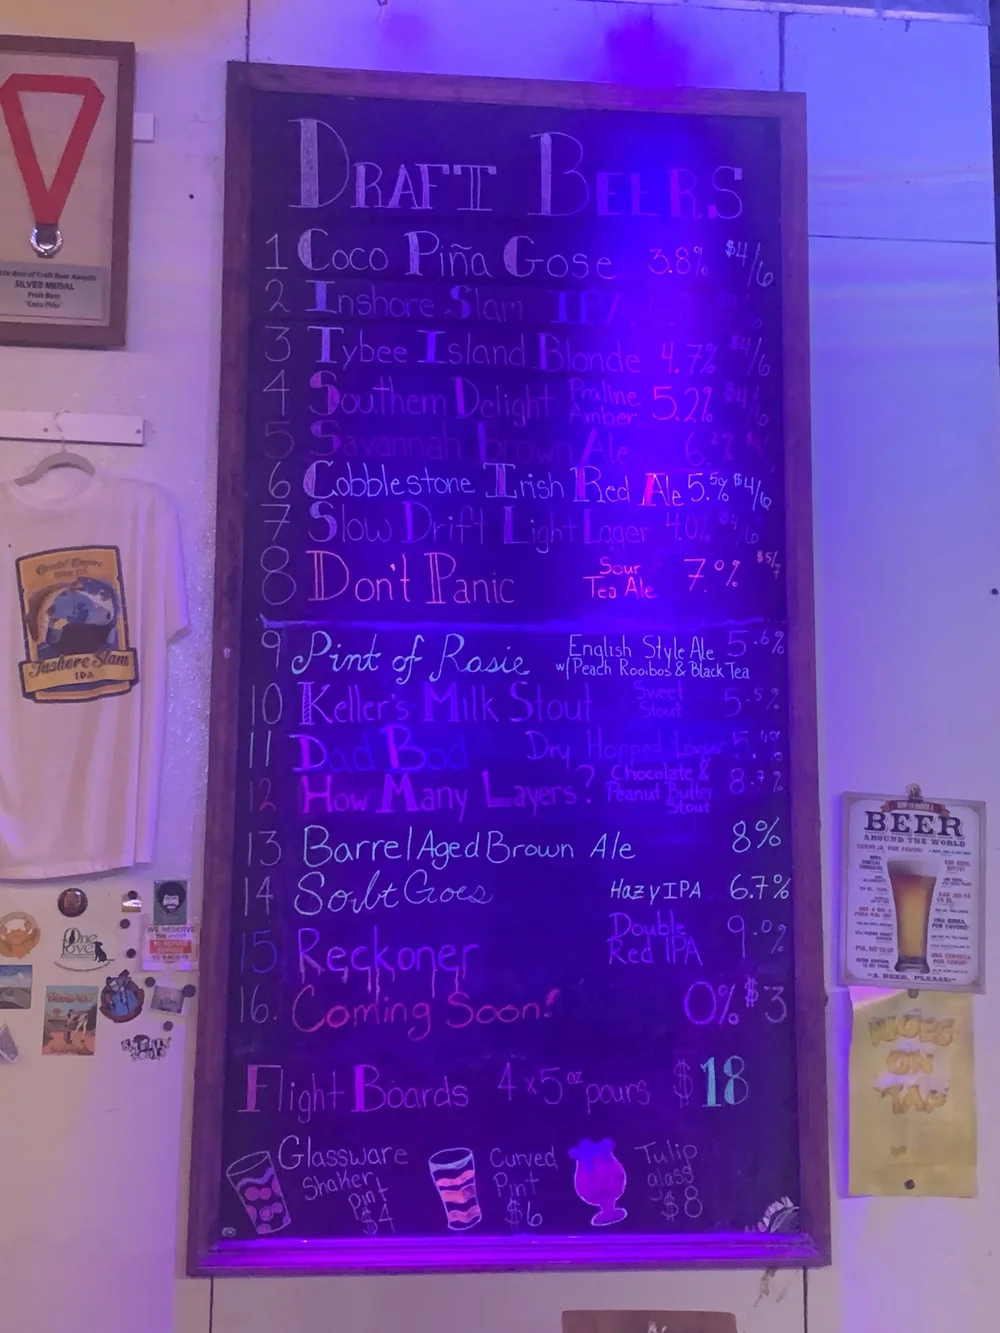 DRAFT BEERS
1 Coco Piña Gose 3.8% $4/6
2 Inshore Slam IPA
3 Tybee Island Blonde 4.7% $4/6
4 Southern Delight Praline Amber 5.2% $4/6
5 Savannah Brown Ale
6 Cobblestone Irish Red Ale 5.5% $4/6
7 Slow Drift Light Lager 4.0% $4/6
8 Don't Panic Sour Tea Ale 7.0% $5/7
9 Pint of Rosie English Style Ale 5.6%
w/ Peach Rooibos & Black Tea
10 Keller's Milk Stout Sweet Stout 5.5%
11 Dad Bod Dry Hopped Lager
12 How Many Layers? Chocolate & Peanut Butter Stout 8.7%
13 Barrel Aged Brown Ale 8%
14 Sorbt Goes Hazy IPA 6.7%
15 Reckoner Double Red IPA 9.0%
16. Coming Soon! 0% $3
Flight Boards 4x5oz pours $18
Glassware
Shaker Pint $4
Curved Pint $6
Tulip glass $8
SILVER MEDAL
Fruit Beer
Coco Piña
Coastal Empire
Inshore Slam
IPA
One love
WE RESERVE
BEER
AROUND THE WORLD
"A BEER, PLEASE!"
ON
TAP